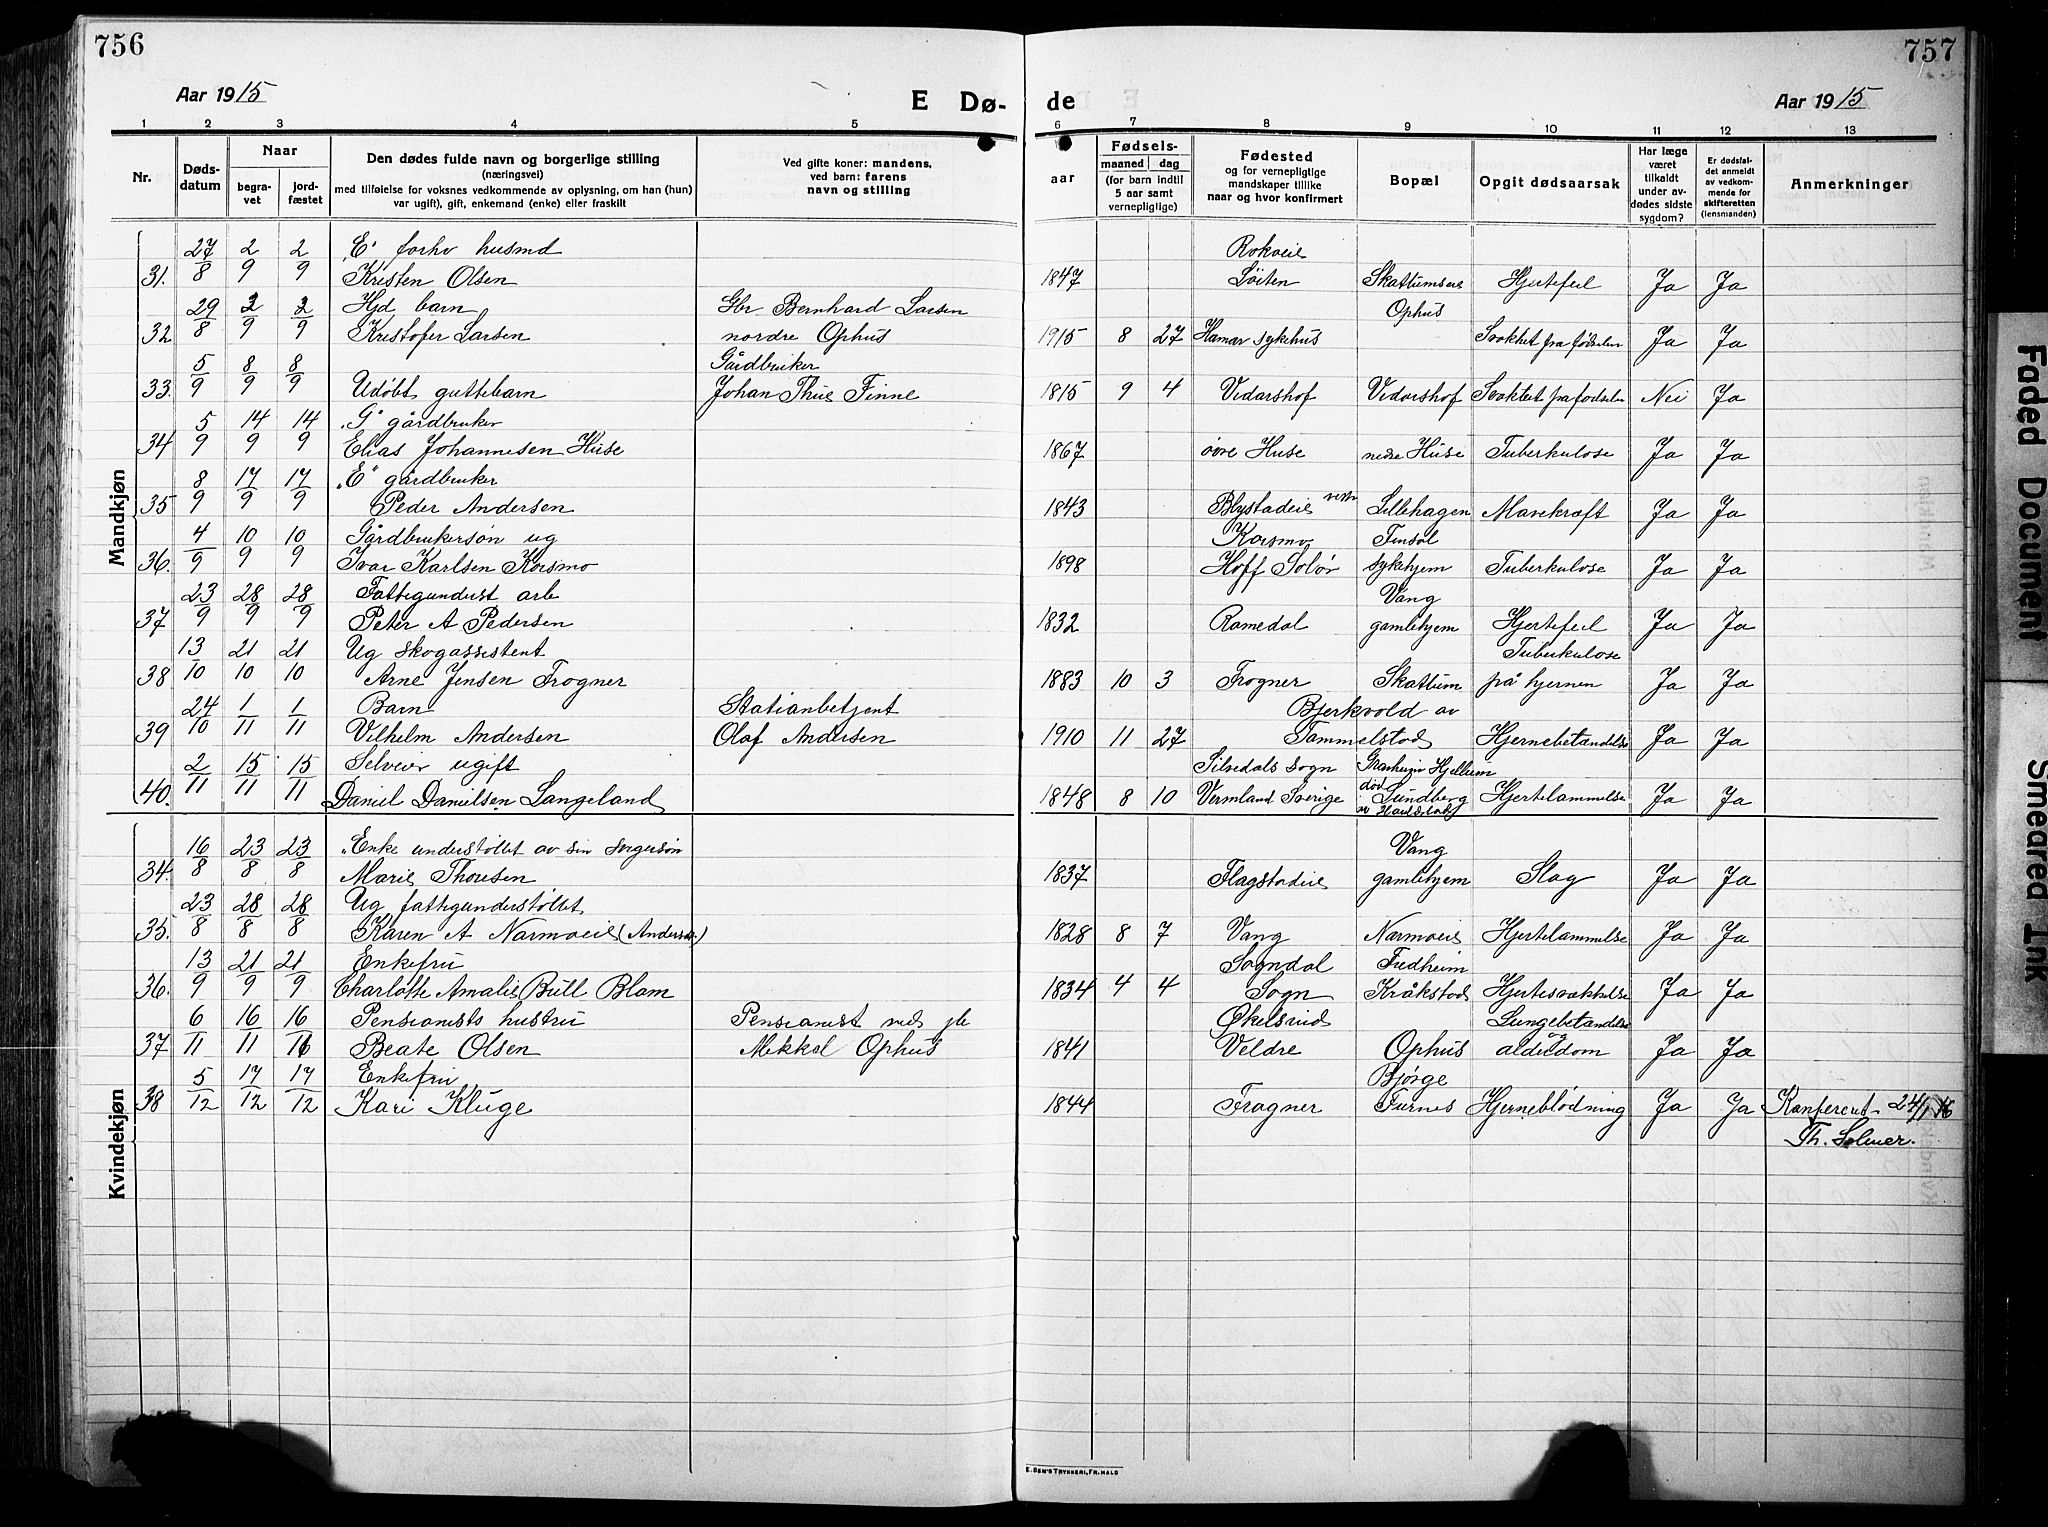 756
Aar 1915
E Dø-
1 2 3 4 5
Nr. Dødsdatum Naar begravet jordfæstet Den dødes fulde navn og borgerlige stilling (næringsvei) med tilføielse for voksnes vedkommende av oplysning, om han (hun) var ugift), gift, enkemand (enke) eller fraskilt Ved gifte koner: mandens, ved barn: farens navn og stilling
Mandkjøn
27/8 2/9 2/9 "E" forhv husmd
31. Kristen Olsen
29/8 2/9 2/9 Hjd barn Gbr Bernhard Larsen
32 Kristofer Larsen nordre Ophus
5/9 8/9 8/9 Gårdbruker
33. Udøbt guttebarn Johan Thue Finne
5/9 14/9 14/9 "G" gårdbruker
34 Elias Johannesen Huse
8/9 17/9 17/9 "E" gårdbruker
35 Peder Andersen
4/9 10/9 10/9 Gårdbrukersøn ug
36. Ivar Karlsen Korsmo
23/9 28/9 28/9 Fattigunderst arb
37 Peter A Pedersen
13/10 21/10 21/10 Ug skogassistent
38 Arne Jensen Frogner
24/10 1/11 1/11 Barn Stationbetjent
39 Vilhelm Andersen Olaf Andersen
2/11 15/11 15/11 Selveier ugift
40. Daniel Danielsen Langeland
Kvindekjøn
16/8 23/8 23/8 "Enke understøttet av sin svigersøn
34. Marie Thoresen
23/8 28/8 28/8 Ug fattigunderstøttet
35. Karen A Narmoeie (Anders.)
13/9 21/9 21/9 Enkefru
36. Charlotte Amalie Bull Blom
6/11 16/11 16/11 Pensionists hustru Pensionist ved jb
37 Beate Olsen Mikkel Ophus
5/12 17/12 17/12 Enkefru
38 Kari Kluge
757
de
Aar 1915
6 7 8 9 10 11 12 13
aar Fødsels- maaned dag (for barn indtil 5 aar samt vernepligtige) Fødested og for vernepligtige mandskaper tillike naar og hvor konfirmert Bopæl Opgit dødsaarsak Har læge været tilkaldt under avdødes sidste sygdom? Er dødsfaldet anmeldt av vedkommende for skifteretten (lensmanden) Anmerkninger
Rokoeie
1847 Løiten Skattumseie Hjertefeil Ja Ja
Ophus
1915 8 27 Hamar sykehus Svakhet fra fødselen Ja Ja
1815 9 4 Vidarshof Vidarshof Svakhet fra fødselen Nei Ja
1867 øvre Huse nedre Huse Tuberkulose Ja Ja
1843 Blystadeie vestre Lillehagen Mavekræft Ja Ja
Korsmo Finsal
1898 Hoff Solør sykehjem Tuberkulose Ja Ja
Vang
1832 Romedal gamlehjem Hjertefeil Ja Ja
Tuberkulose
1883 10 3 Frogner Skattum på hjernen Ja Ja
Bjerkvold av
1910 11 27 Tommelstad Hjernebetændelse Ja Ja
Silvedals sogn Hjellum
1848 8 10 Vermland Sverige død Lundberg Hjertelammelse Ja Ja
Vang
1837 Flagstadeie gamlehjem Slag Ja Ja
1828 8 7 Vang Narmoeie Hjertelammelse Ja Ja
Sogndal Fredheim
1834 4 4 Sogn Kråkstad Hjertesvækkelse Ja Ja
Økelsrud Lungebetændelse
1841 Veldre Ophus og alderdom Ja Ja
Bjørge
1844 Frogner Furnes Hjerneblødning Ja Ja Konferent 24/1 16
Th. Solner.
E. SEM'S TRYKKERI, FR.HALD
Faded Document
Smeared Ink